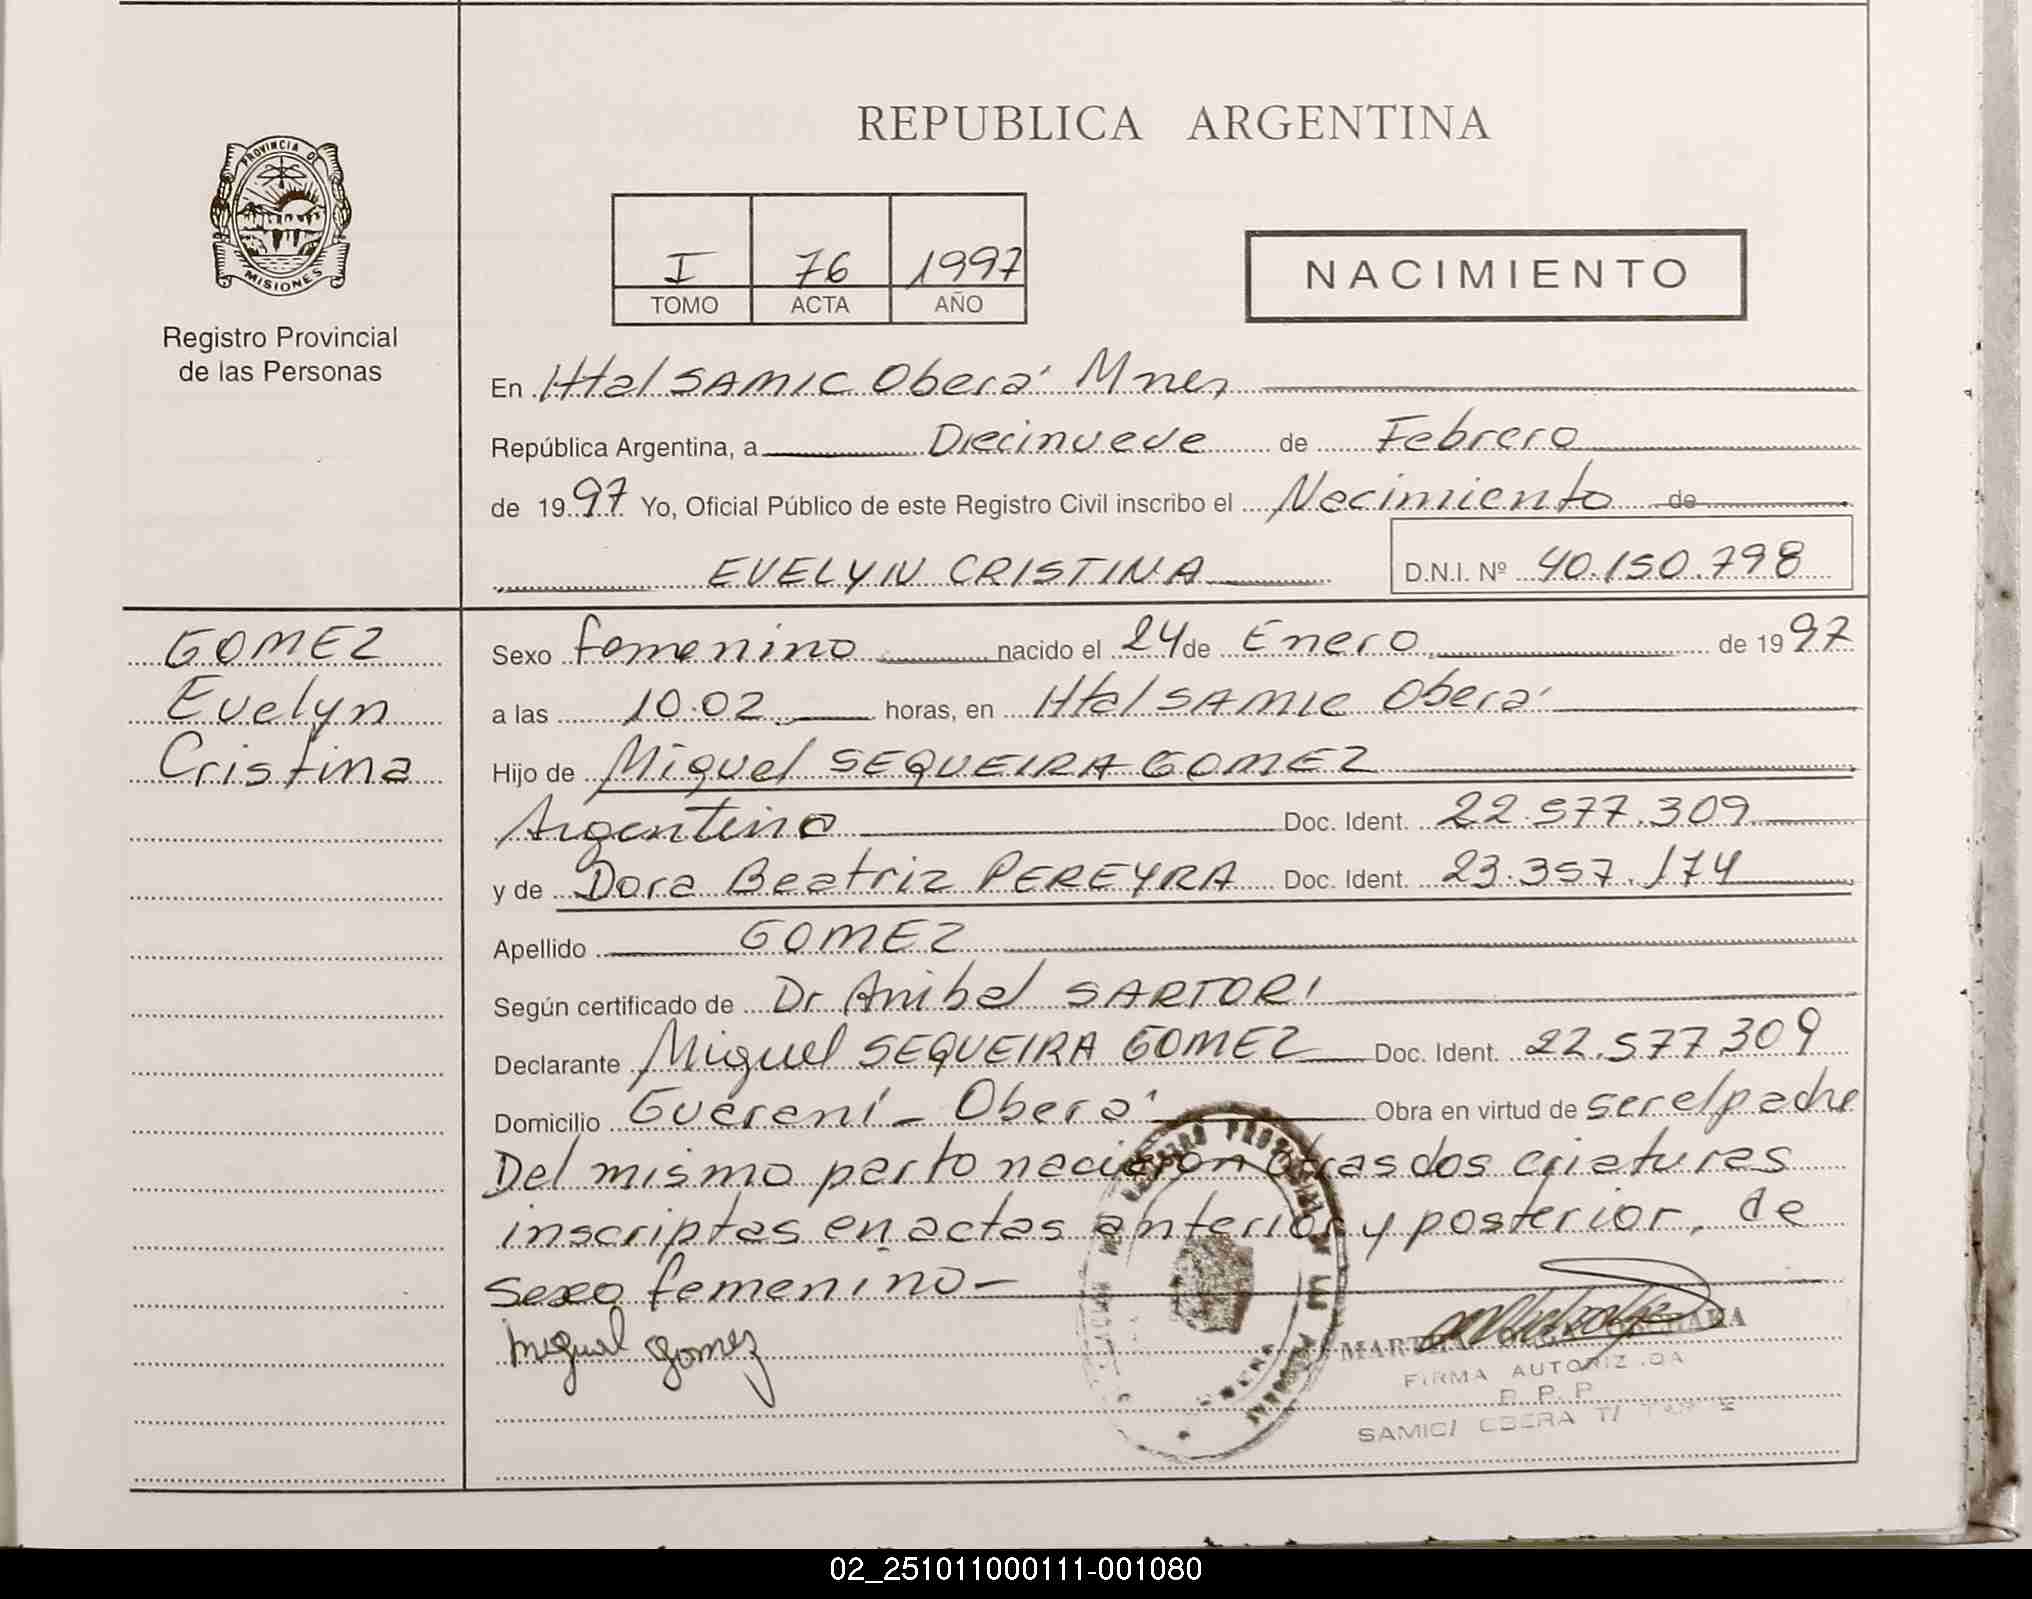 REPUBLICA ARGENTINA
PROVINCIA DE
MISIONES
Registro Provincial
de las Personas
I 76 1997
TOMO ACTA AÑO
NACIMIENTO
En Htal SAMIC Oberá Mnes
República Argentina, a Diecinueve de Febrero
de 1997 Yo, Oficial Público de este Registro Civil inscribo el Nacimiento de
EVELYN CRISTINA D.N.I. Nº 40.150.798
GOMEZ
Evelyn
Cristina
Sexo femenino nacido el 24 de Enero de 1997
a las 10.02 horas, en Htal SAMIC Oberá
Hijo de Miguel SEQUEIRA GOMEZ
Argentino Doc. Ident. 22.577.309
y de Dora Beatriz PEREYRA Doc. Ident. 23.357.174
Apellido GOMEZ
Según certificado de Dr Anibal SARTORI
Declarante Miguel SEQUEIRA GOMEZ Doc. Ident. 22.577.309
Domicilio Guaraní - Oberá Obra en virtud de ser el padre
Del mismo parto nacieron otras dos criaturas
inscriptas en actas anterior y posterior, de
sexo femenino-
Miguel Gomez
FIRMA AUTORIZADA
R. P. P.
SAMIC/ OBERA
02_251011000111-001080